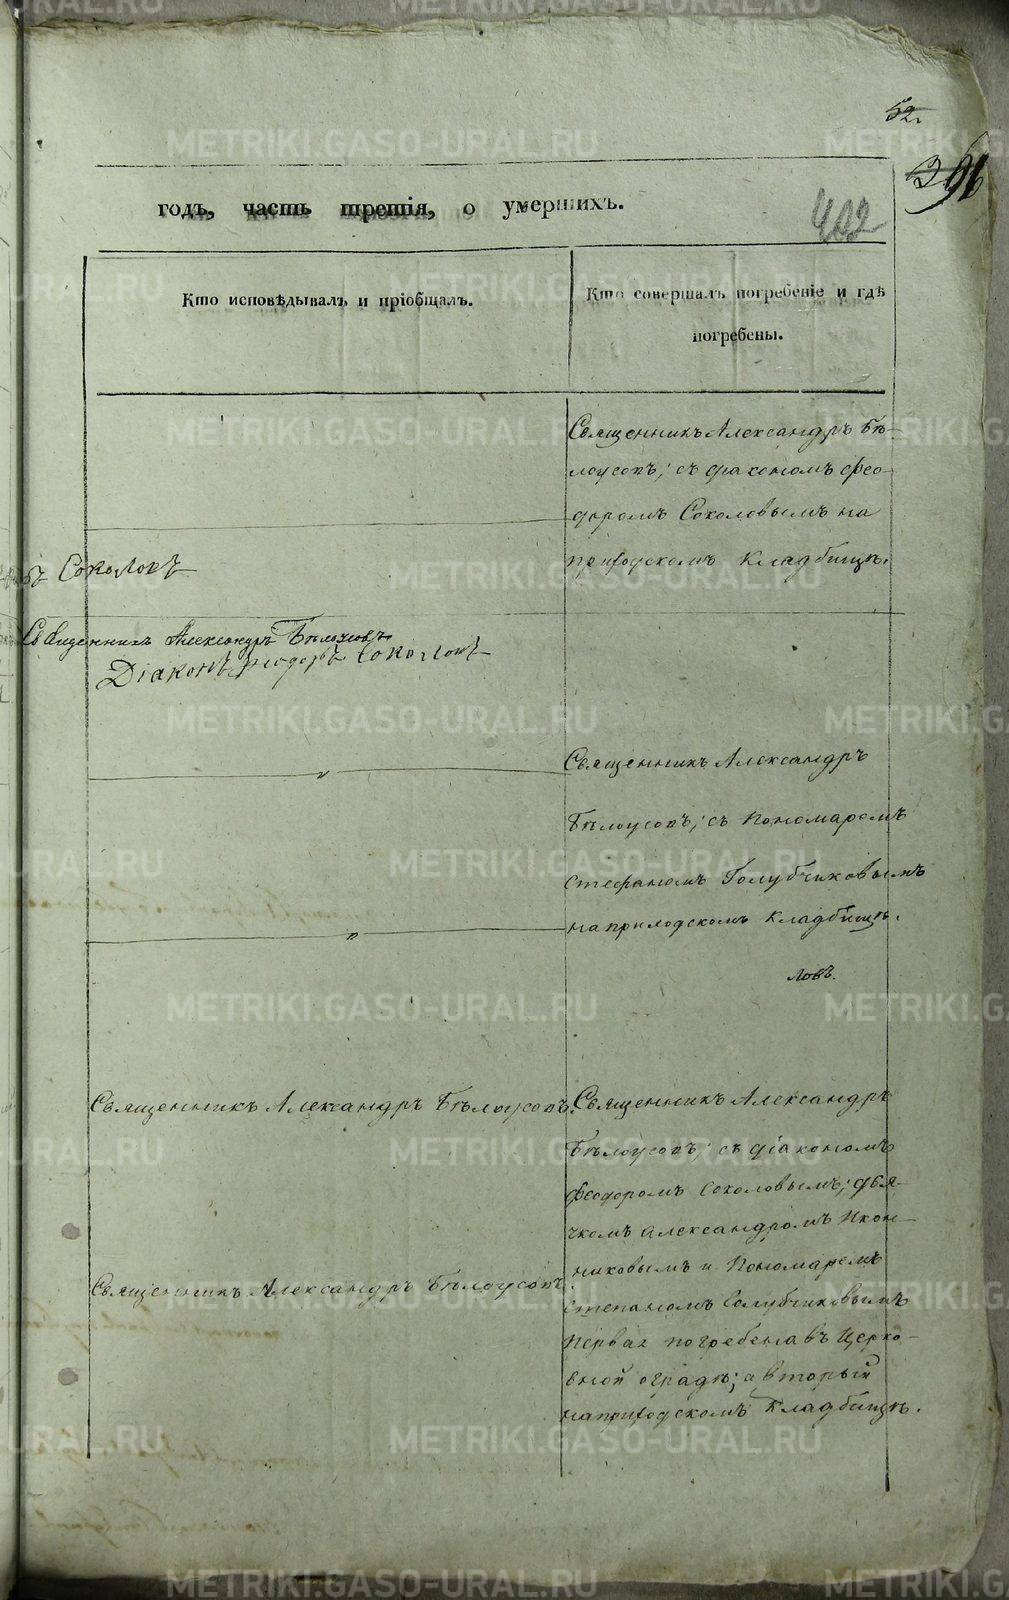 52.
396
402
годъ, часть третія, о умершихъ.
Кто исповѣдывалъ и пріобщалъ.
Кто совершалъ погребеніе и гдѣ
погребены.
Священникъ Александръ Бѣ-
лоусовъ; съ діакономъ Ѳео-
доромъ Соколовымъ на
приходскомъ кладбищѣ.
Соколовъ
Священникъ Александръ Бѣлоусовъ
Діаконъ Ѳеодоръ Соколовъ
Священникъ Александръ
Бѣлоусовъ; съ Пономаремъ
Стефаномъ Голубчиковымъ
на приходскомъ кладбищѣ.
ловъ.
Священникъ Александръ Бѣлоусовъ.
Священникъ Александръ
Бѣлоусовъ; съ діакономъ
Ѳеодоромъ Соколовымъ; дья-
чкомъ Александромъ Икон-
никовымъ и Пономаремъ
Священникъ Александръ Бѣлоусовъ.
Степаномъ Голубчиковымъ
первая погребена въ Церко-
вной оградѣ; а вторый
на приходскомъ кладбищѣ.
METRIKI.GASO-URAL.RU